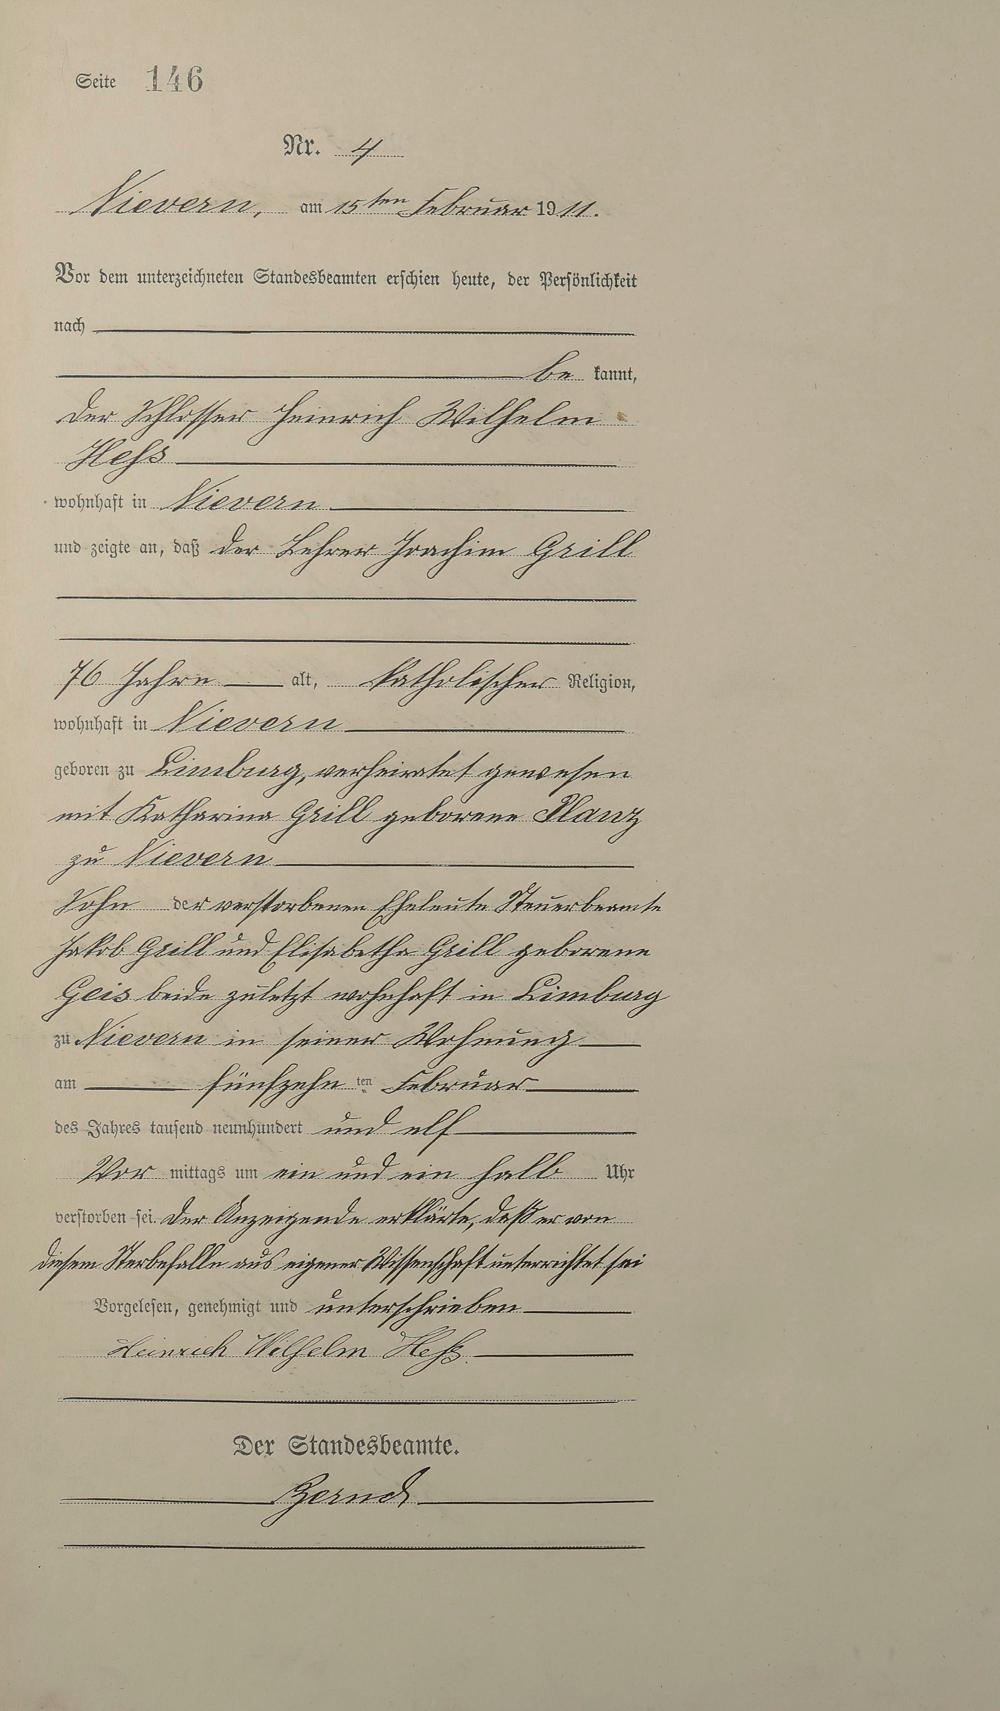 Seite 146
Nr. 4
Nievern, am 15ten Februar 1911.
Vor dem unterzeichneten Standesbeamten erschien heute, der Persönlichkeit
nach
be kannt,
der Schlosser Heinrich Wilhelm
Heß
wohnhaft in Nievern
und zeigte an, daß der Lehrer Joachim Grill
76 Jahre alt, katholischer Religion,
wohnhaft in Nievern
geboren zu Limburg, verheiratet gewesen
mit Katharina Grill geborene Planz
zu Nievern
Sohn der verstorbenen Eheleute Steuerbeamte
Jakob Grill und Elisabetha Grill geborene
Geis beide zuletzt wohnhaft in Limburg
zu Nievern in seiner Wohnung
am fünfzehn ten Februar
des Jahres tausend neunhundert und elf
Vor mittags um ein und ein halb Uhr
verstorben sei. Der Anzeigende erklärte, daß er von
diesem Sterbefalle aus eigener Wissenschaft unterrichtet sei
Vorgelesen, genehmigt und unterschrieben
Heinrich Wilhelm Heß.
Der Standesbeamte.